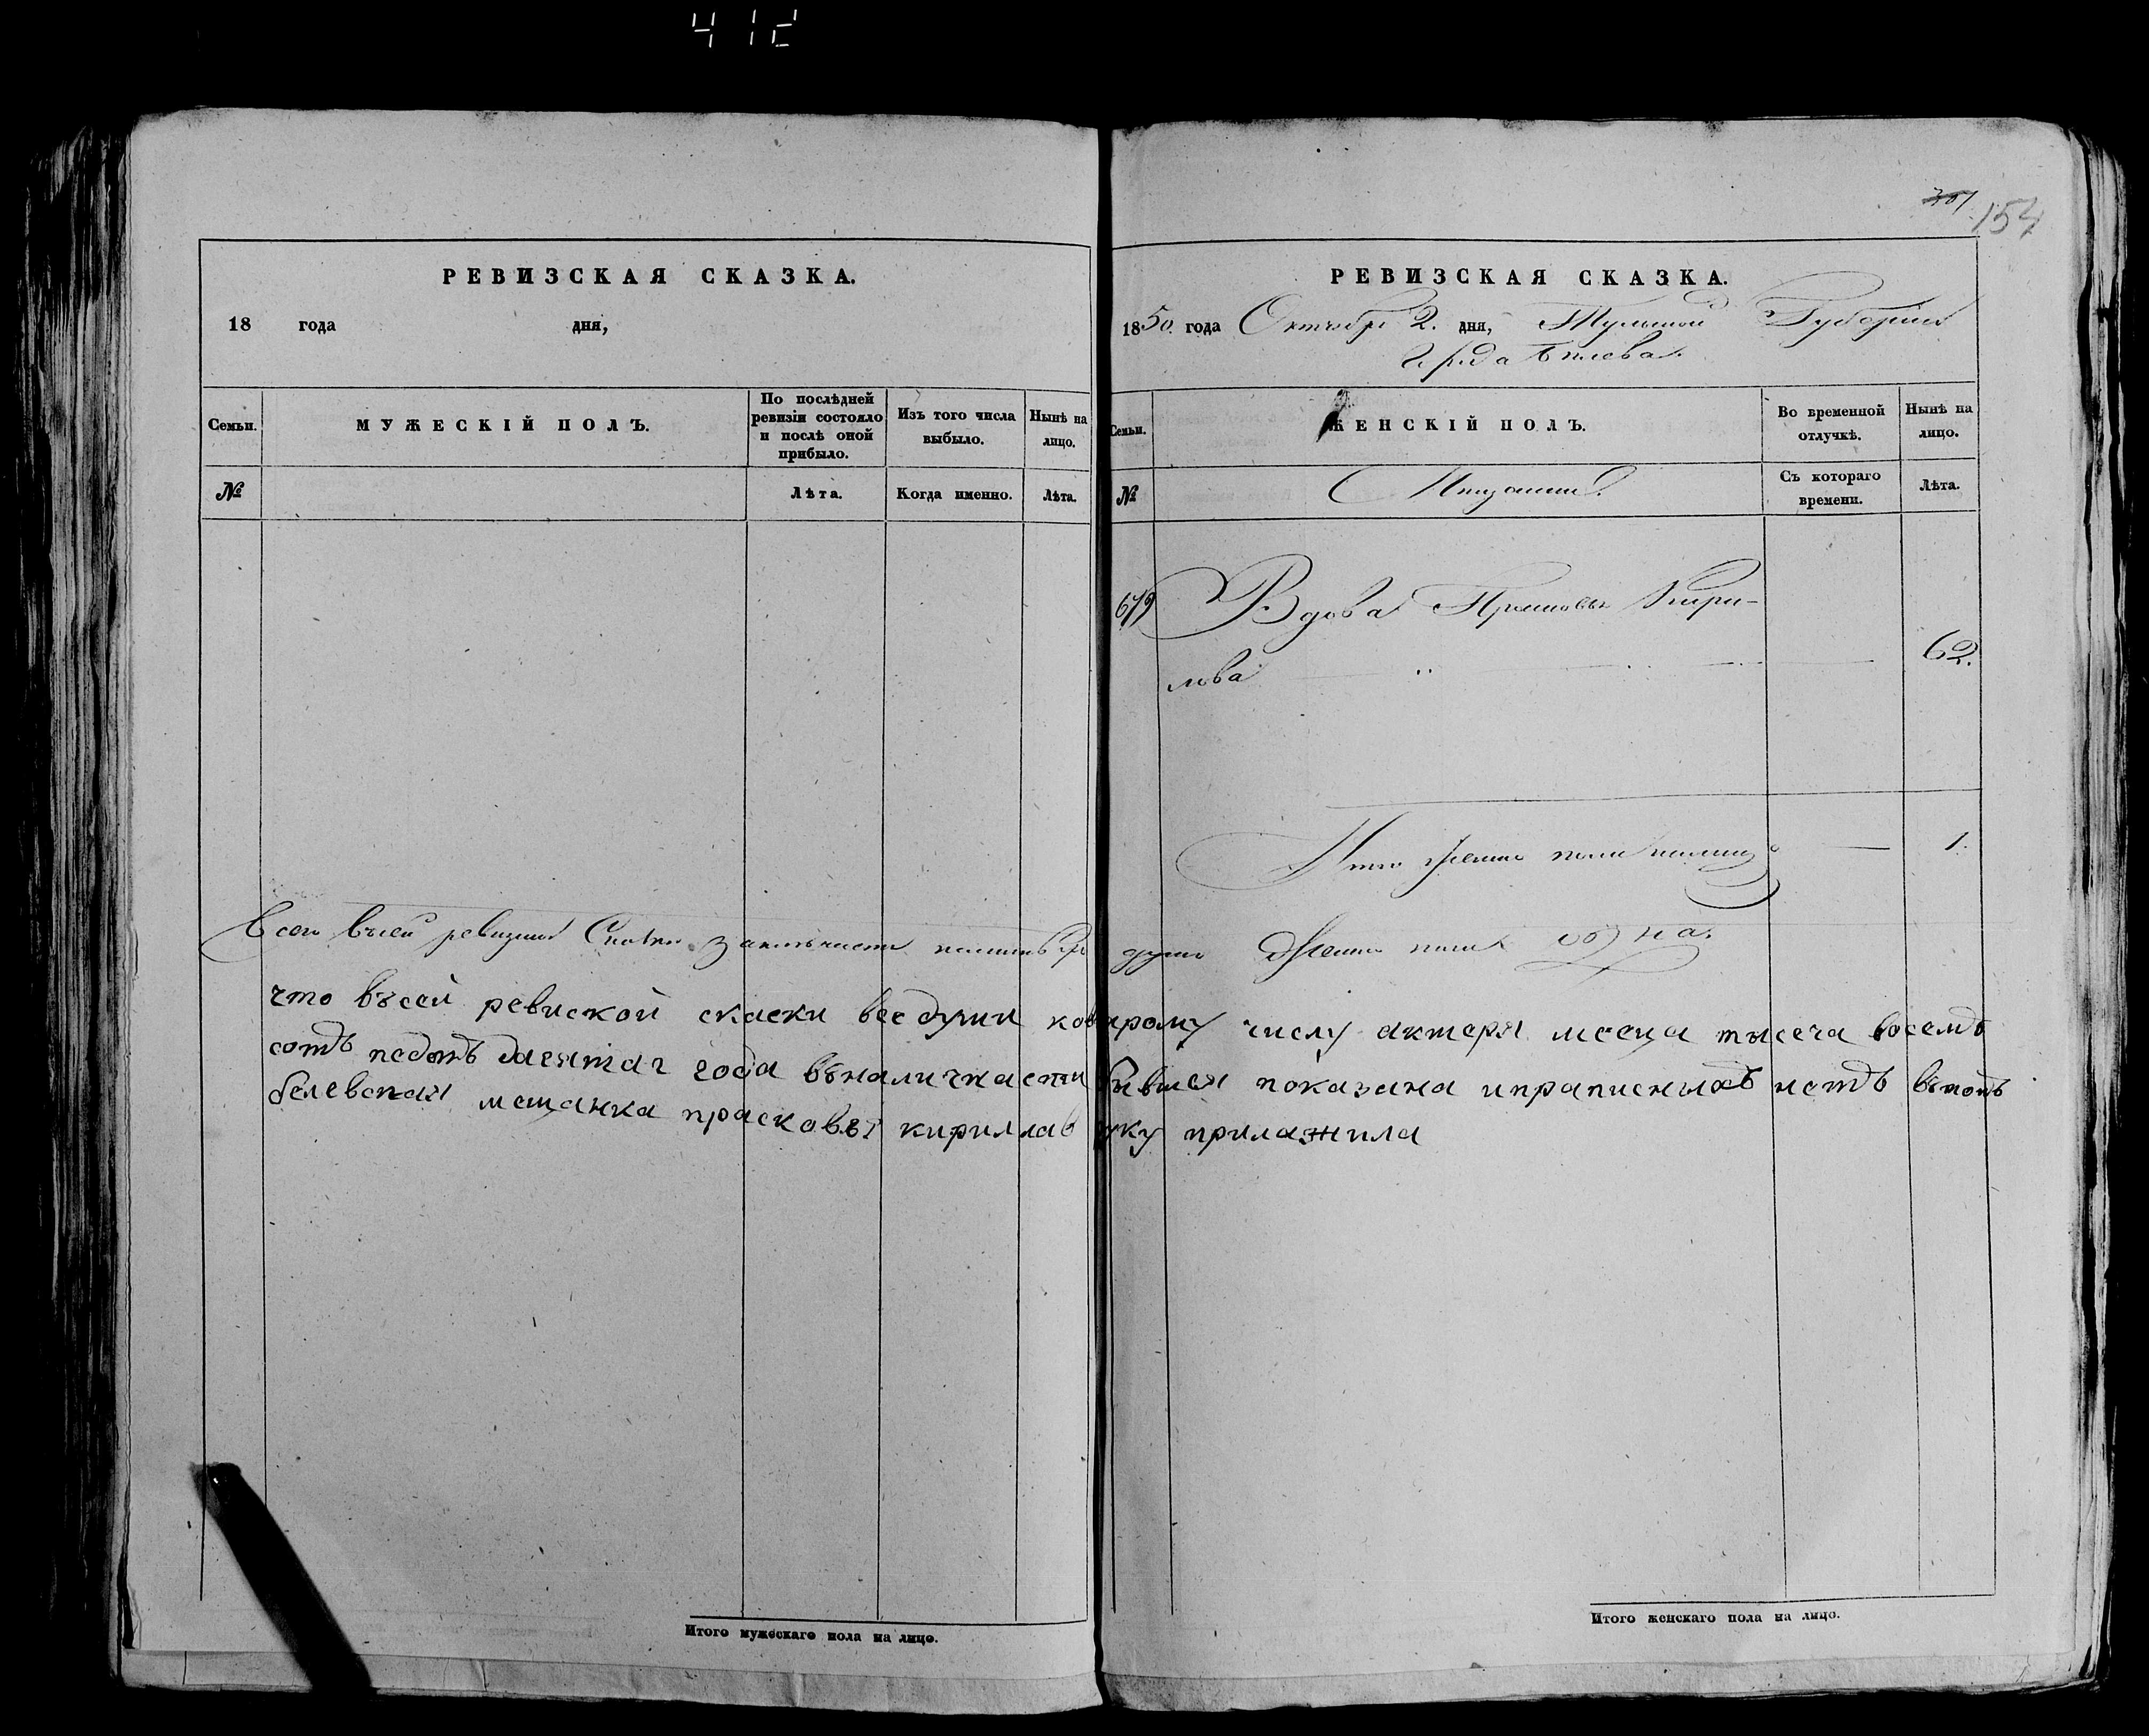 412
301
154
РЕВИЗСКАЯ СКАЗКА.
18 года дня,
Семьи.
МУЖЕСКІЙ ПОЛЪ.
По послѣдней ревизіи состояло и послѣ оной прибыло.
Изъ того числа выбыло.
Нынѣ на лицо.
№
Лѣта.
Когда именно.
Лѣта.
РЕВИЗСКАЯ СКАЗКА.
1850. года Октября 2. дня, Тульской Губерніи
Города Бѣлева.
Семьи.
ЖЕНСКІЙ ПОЛЪ.
Во временной отлучкѣ.
Нынѣ на лицо.
№
Мещане.
Съ котораго времени.
Лѣта.
679 Вдова Прасковья Кири-
лова 62.
Итого женска пола налицо — 1.
Всего въ сей ревизской Сказки заключается душъ женска пола одна.
что въсей ревиской скаски все души ковтрому числу актеря месеца тысеча восемъ
сотъ педьдъ года въналичнасти бывшея показана ипраписныхъ нетъ вътомъ
белевская мещанка прасковья кириллав руку прилажила
Итого мужескаго пола на лицо.
Итого женскаго пола на лицо.